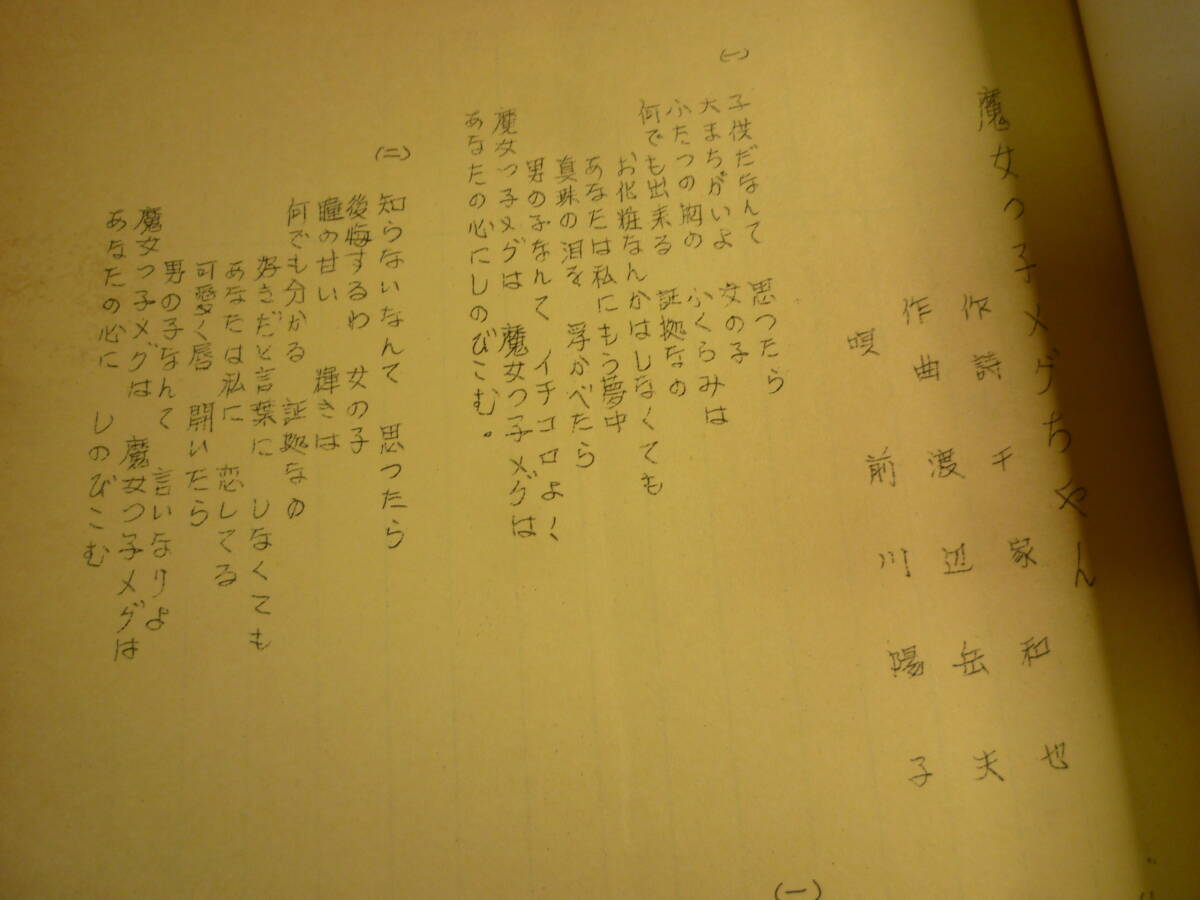 魔女っ子メグちゃん
作詩 千家和也
作曲 渡辺岳夫
唄 前川陽子
(一)
子供だなんて 思ったら
大まちがいよ 女の子
ふたつの胸の ふくらみは
何でも出来る 証拠なの
お化粧なんかはしなくても
あなたは私にもう夢中
真珠の泪を 浮かべたら
男の子なんて イチコロよ!
魔女っ子メグは 魔女っ子メグは
あなたの心にしのびこむ。
(二)
知らないなんて 思ったら
後悔するわ 女の子
瞳の甘い 輝きは
何でも分かる 証拠なの
好きだと言葉に しなくても
あなたは私に 恋してる
可愛く唇 開いたら
男の子なんて 言いなりよ
魔女っ子メグは 魔女っ子メグは
あなたの心に しのびこむ
(一)